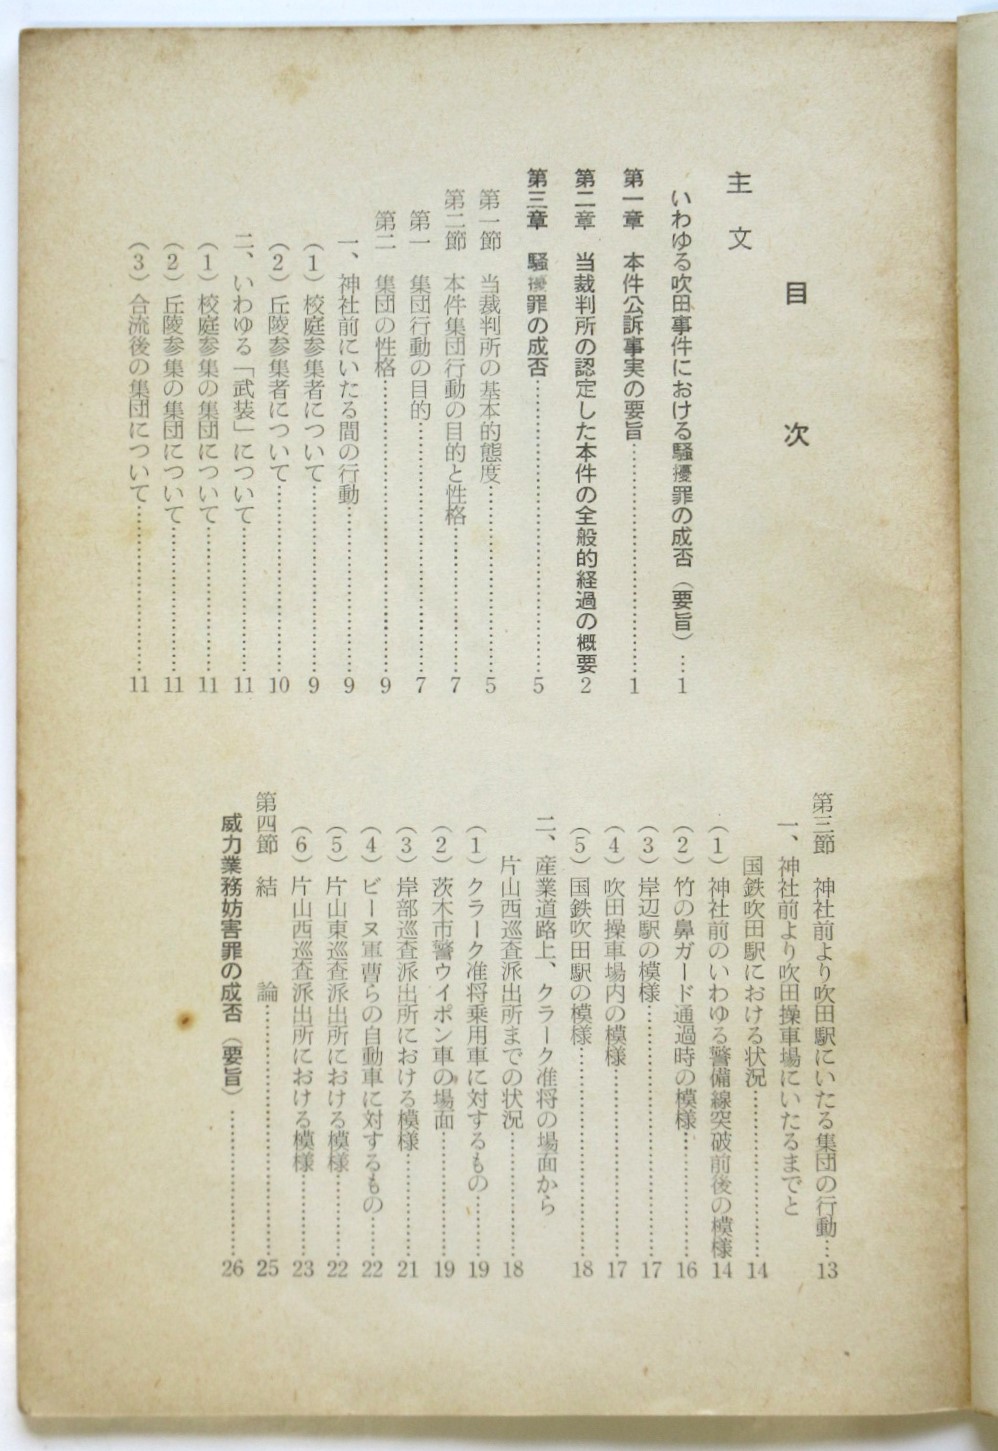 目次
主文
いわゆる吹田事件における騒擾罪の成否（要旨）…1
第一章　本件公訴事実の要旨……………………1
第二章　当裁判所の認定した本件の全般的経過の概要2
第三章　騒擾罪の成否……………………………5
第一節　当裁判所の基本的態度…………………5
第二節　本件集団行動の目的と性格……………7
第一　集団行動の目的……………………………7
第二　集団の性格…………………………………9
一、神社前にいたる間の行動……………………9
（1）校庭参集者について………………………9
（2）丘陵参集者について………………………10
二、いわゆる「武装」について…………………11
（1）校庭参集の集団について…………………11
（2）丘陵参集の集団について…………………11
（3）合流後の集団について……………………11
第三節　神社前より吹田駅にいたる集団の行動…13
一、神社前より吹田操車場にいたるまでと
国鉄吹田駅における状況…………………………14
（1）神社前のいわゆる警備線突破前後の模様14
（2）竹の鼻ガード通過時の模様………………16
（3）岸辺駅の模様………………………………17
（4）吹田操車場内の模様………………………17
（5）国鉄吹田駅の模様…………………………18
二、産業道路上、クラーク准将の場面から
片山西巡査派出所までの状況……………………18
（1）クラーク准将乗用車に対するもの………19
（2）茨木市警ウイポン車の場面………………19
（3）岸部巡査派出所における模様……………21
（4）ビーヌ軍曹らの自動車に対するもの……22
（5）片山東巡査派出所における模様…………22
（6）片山西巡査派出所における模様…………23
第四節　結　　論…………………………………25
威力業務妨害罪の成否（要旨）…………………26